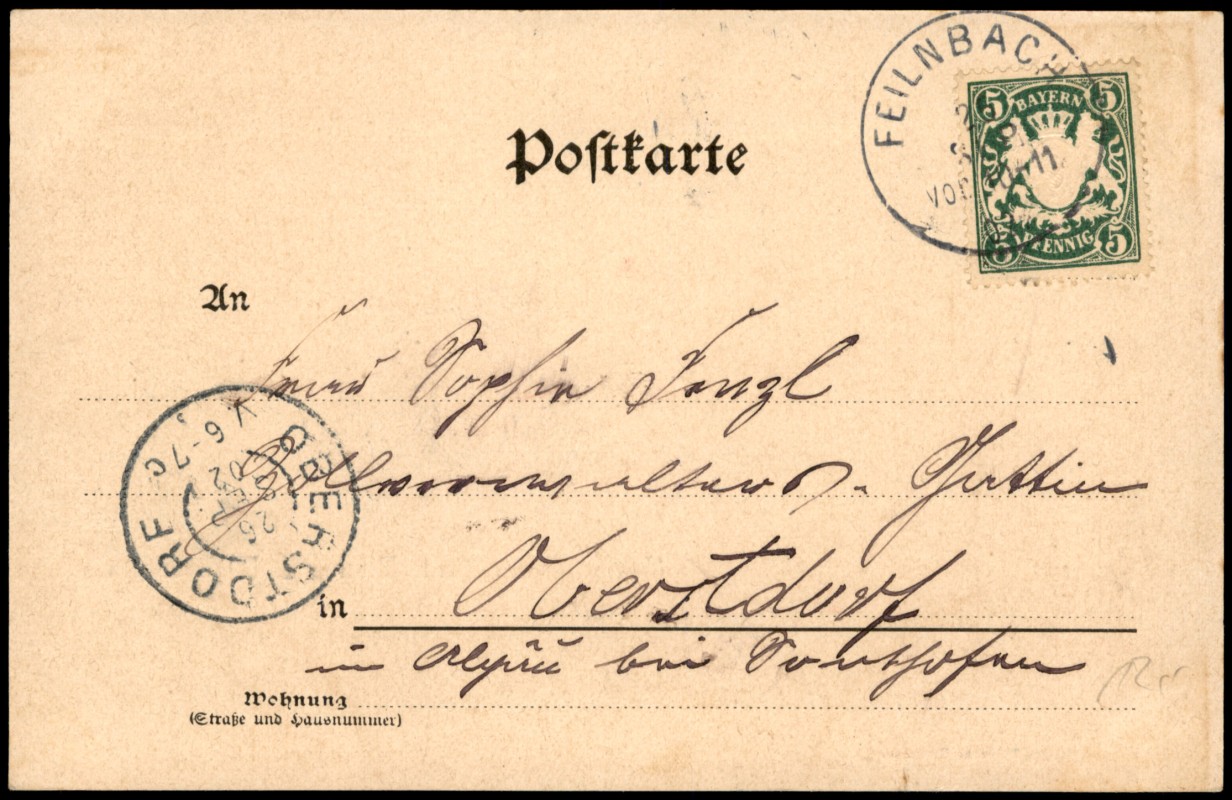 FEILNBACH
VOR 10-11
5 BAYERN 5
5 PFENNIG 5
Poſtkarte
An
Frau Sophie Fenzl
Zollverwalters-Gattin
OBERSTDORF
V 6-7
26
02
in Oberstdorf
im Algäu bei Sonthofen
Wohnung
(Straße und Hausnummer)